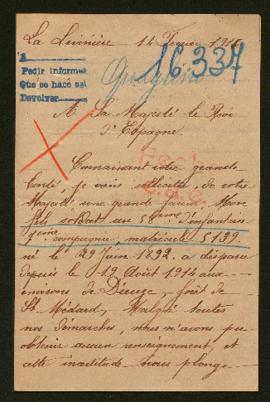 La Livinière 14 Février 1916
A
Pedir informes
Que se hace así
Devolver
16.334
A Sa Majesté le Roi
d'Espagne.
Connaissant votre grande
bonté, je viens solliciter de votre
Majesté une grande faveur. Mon
fils soldat au d'infanterie
compagnie, matricule 5139.
né le 29 Juin 1892. a disparu
depuis le 19 Août 1914 aux
environs de Dieuze, forêt de
St Médard, Malgré toutes
nos démarches, nous n'avons pu
obtenir aucun renseignement et
cette incertitude nous plonge